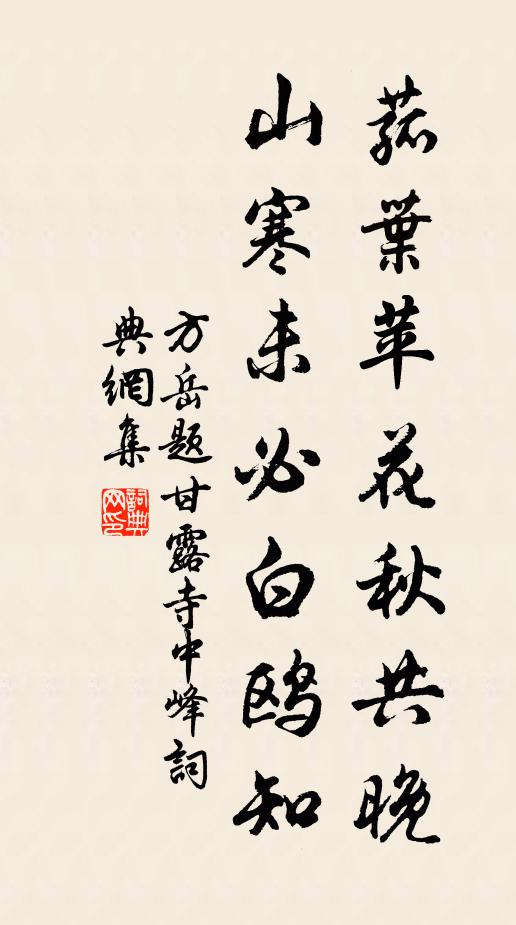 菰葉苹花秋共晚
山寒未必白鷗知
方岳題甘露寺中峰詞
典網集
詞典网印